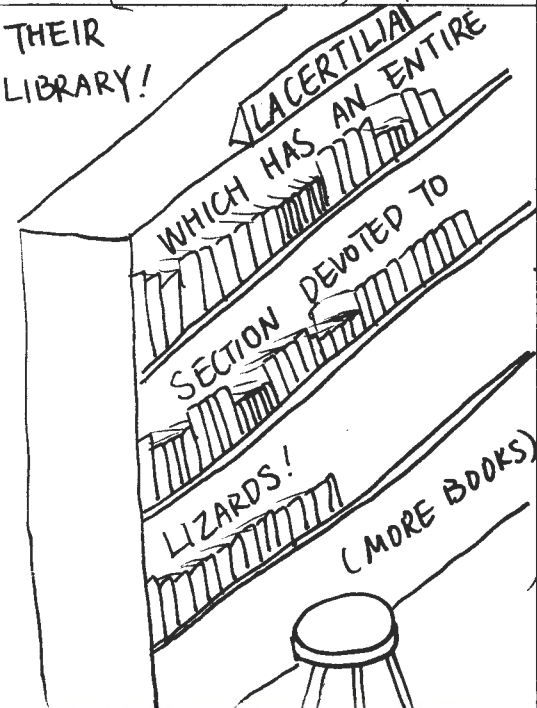 THEIR
LIBRARY!
LACERTILIA
WHICH HAS AN ENTIRE
SECTION DEVOTED TO
LIZARDS!
(MORE BOOKS)